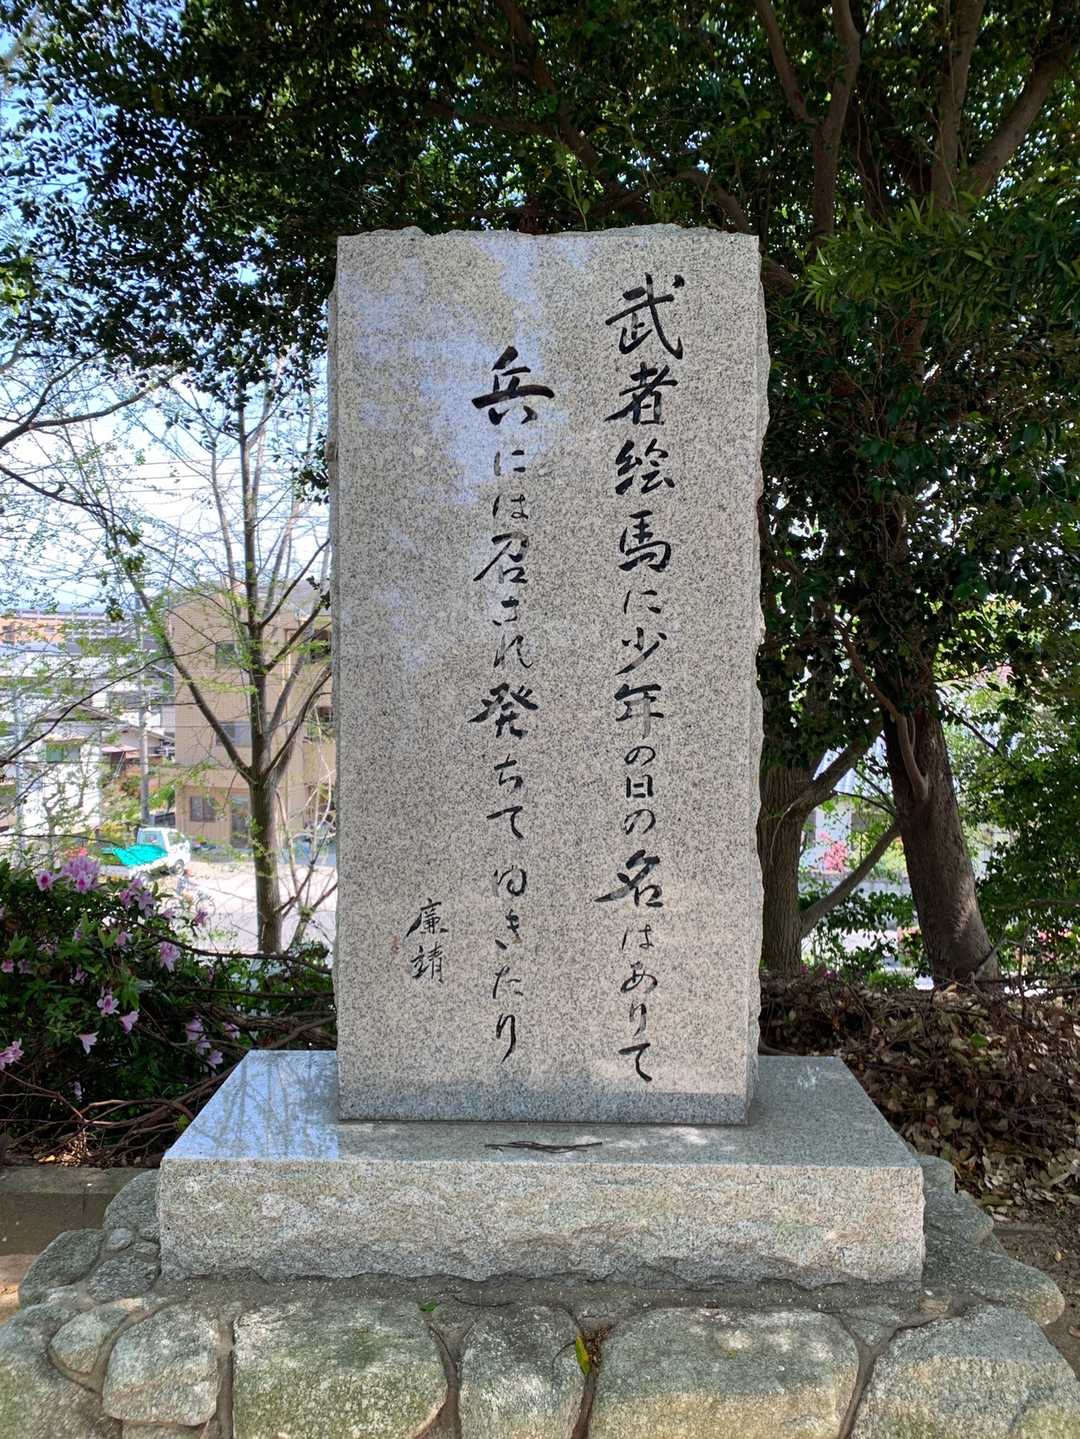 武者絵馬に少年の日の名はありて
兵には召され発ちてゆきたり
廉靖